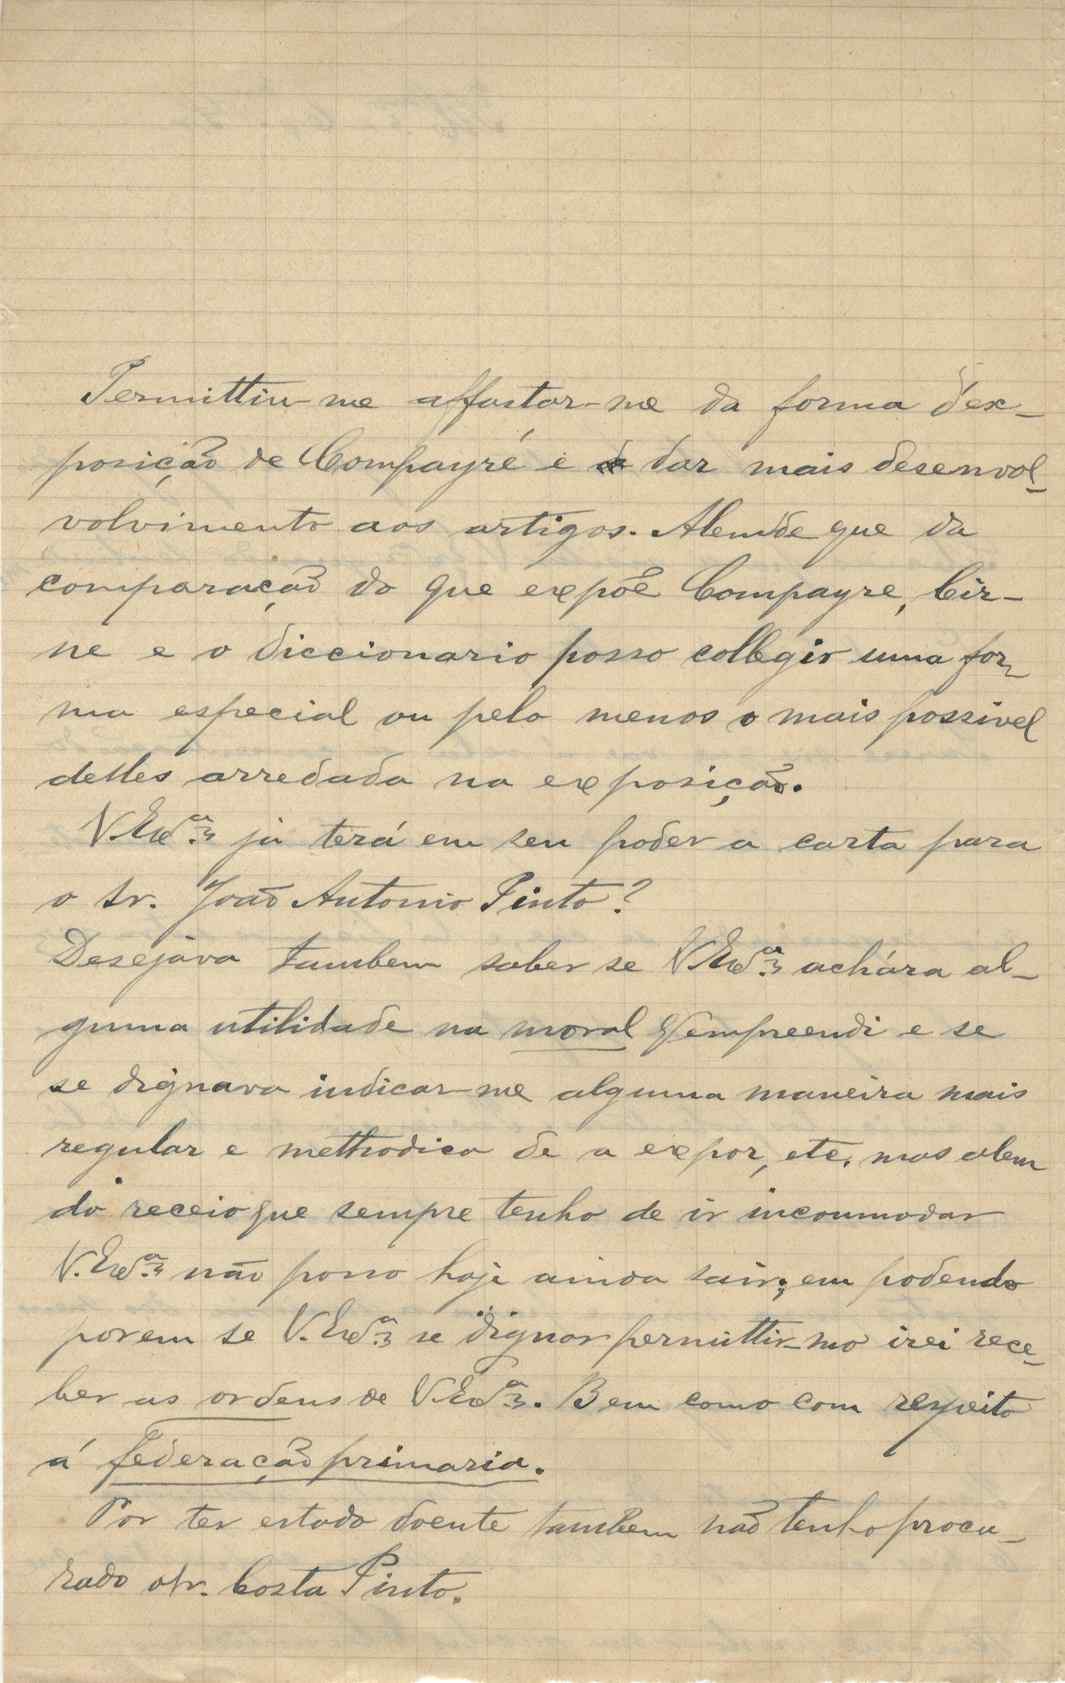 Permittiu-me affastar-me da forma d'ex-
posição de Compayré e dar mais desenvol-
volvimento aos artigos. Alem de que da
comparação do que expõe Compayre, Cir-
ne e o diccionario posso collegir uma for-
ma especial ou pelo menos o mais possivel
delles arredada na exposição.
V. Exª já terá em seu poder a carta para
o sr. João Antonio Pinto?
Desejava tambem saber se V. Exª achára al-
guma utilidade na moral q̃ emprendi e se
se dignava indicar-me alguma maneira mais
regular e methodica de a expor, etc, mas alem
do receio que sempre tenho de ir incommodar
V. Exª não posso hoje ainda sair; em podendo
porem se V. Exª se dignar permittir-mo irei rece-
ber as ordens de V. Exª. Bem como com respeito
á federação primaria.
Por ter estado doente tambem não tenho procu-
rado o sr. Costa Pinto.